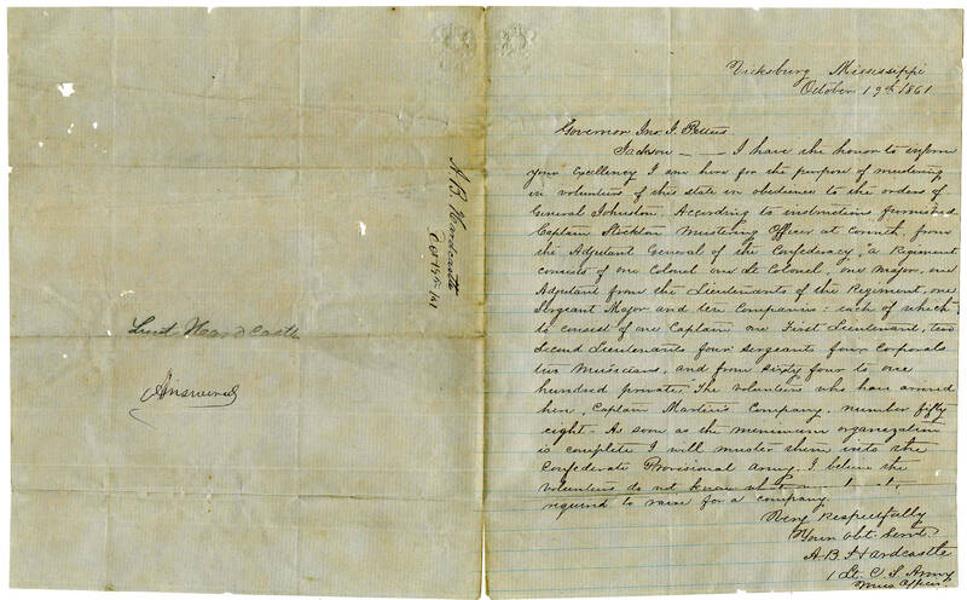 A B Hardcastle
Oct 19th /61
Lieut Hardcastle
Answered
Vicksburg Mississippi
October 19th 1861
Governor Jno. J. Pettus
Jackson — — I have the honor to inform
your Excellency I am here for the purpose of mustering
in volunteers of this state in obedience to the orders of
General Johnston. According to instructions furnished
Captain Stockton Mustering Officer at Corinth, from
the Adjutant General of the Confederacy, "a Regiment
consists of one Colonel one Lt Colonel, one Major, one
Adjutant from the Lieutenants of the Regiment, one
Sergeant Major and ten Companies: each of which
to consist of one Captain one First Lieutenant, two
Second Lieutenants four Sergeants four Corporals
two Musicians, and from sixty four to one
hundred privates." The volunteers who have arrived
here, Captain Martin's Company, number fifty
eight – As soon as the minimum organization
is complete I will muster them into the
Confederate Provisional Army. I believe the
volunteers do not know what
required to raise for a company.
Very Respectfully
Your Obt. Servt.
A. B. Hardcastle
1 Lt. C. S. Army
Mus Officer